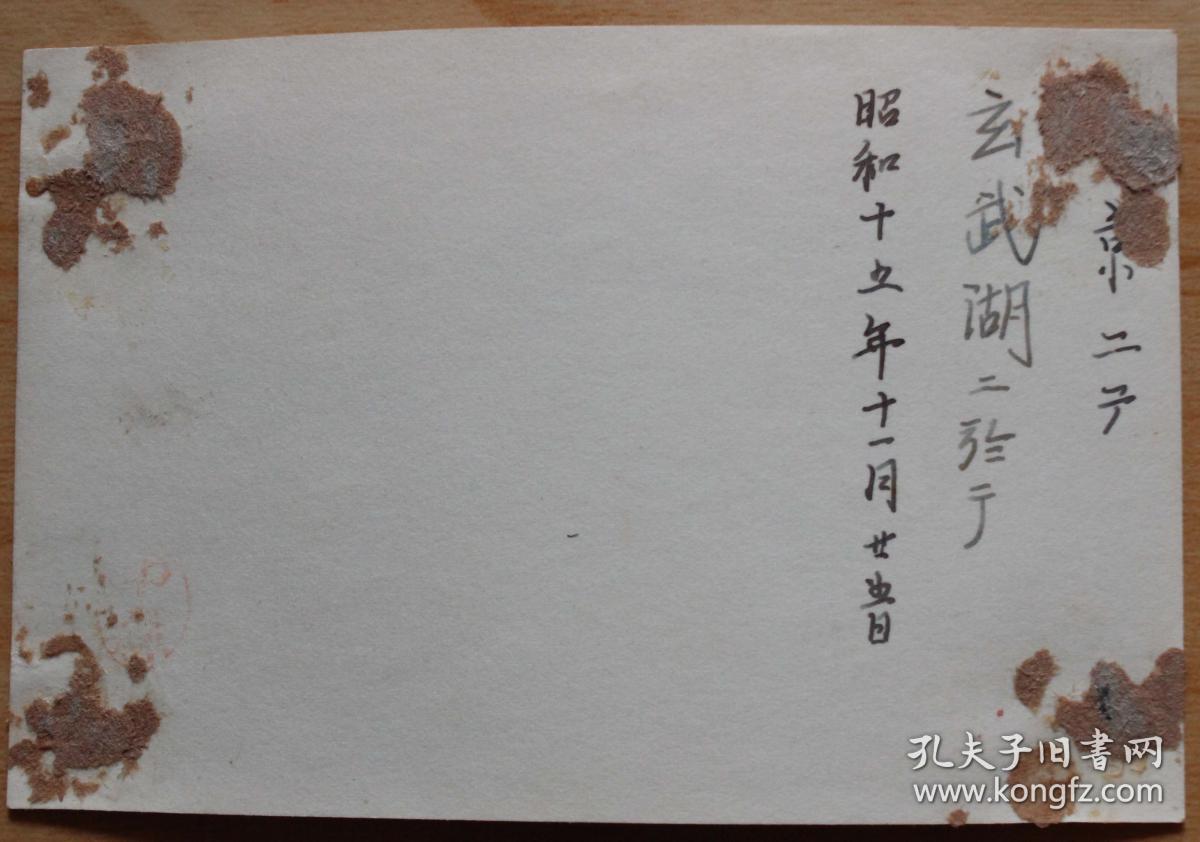 京二テ
玄武湖ニ於テ
昭和十五年十一月廿五日
孔夫子旧书网
www.kongfz.com